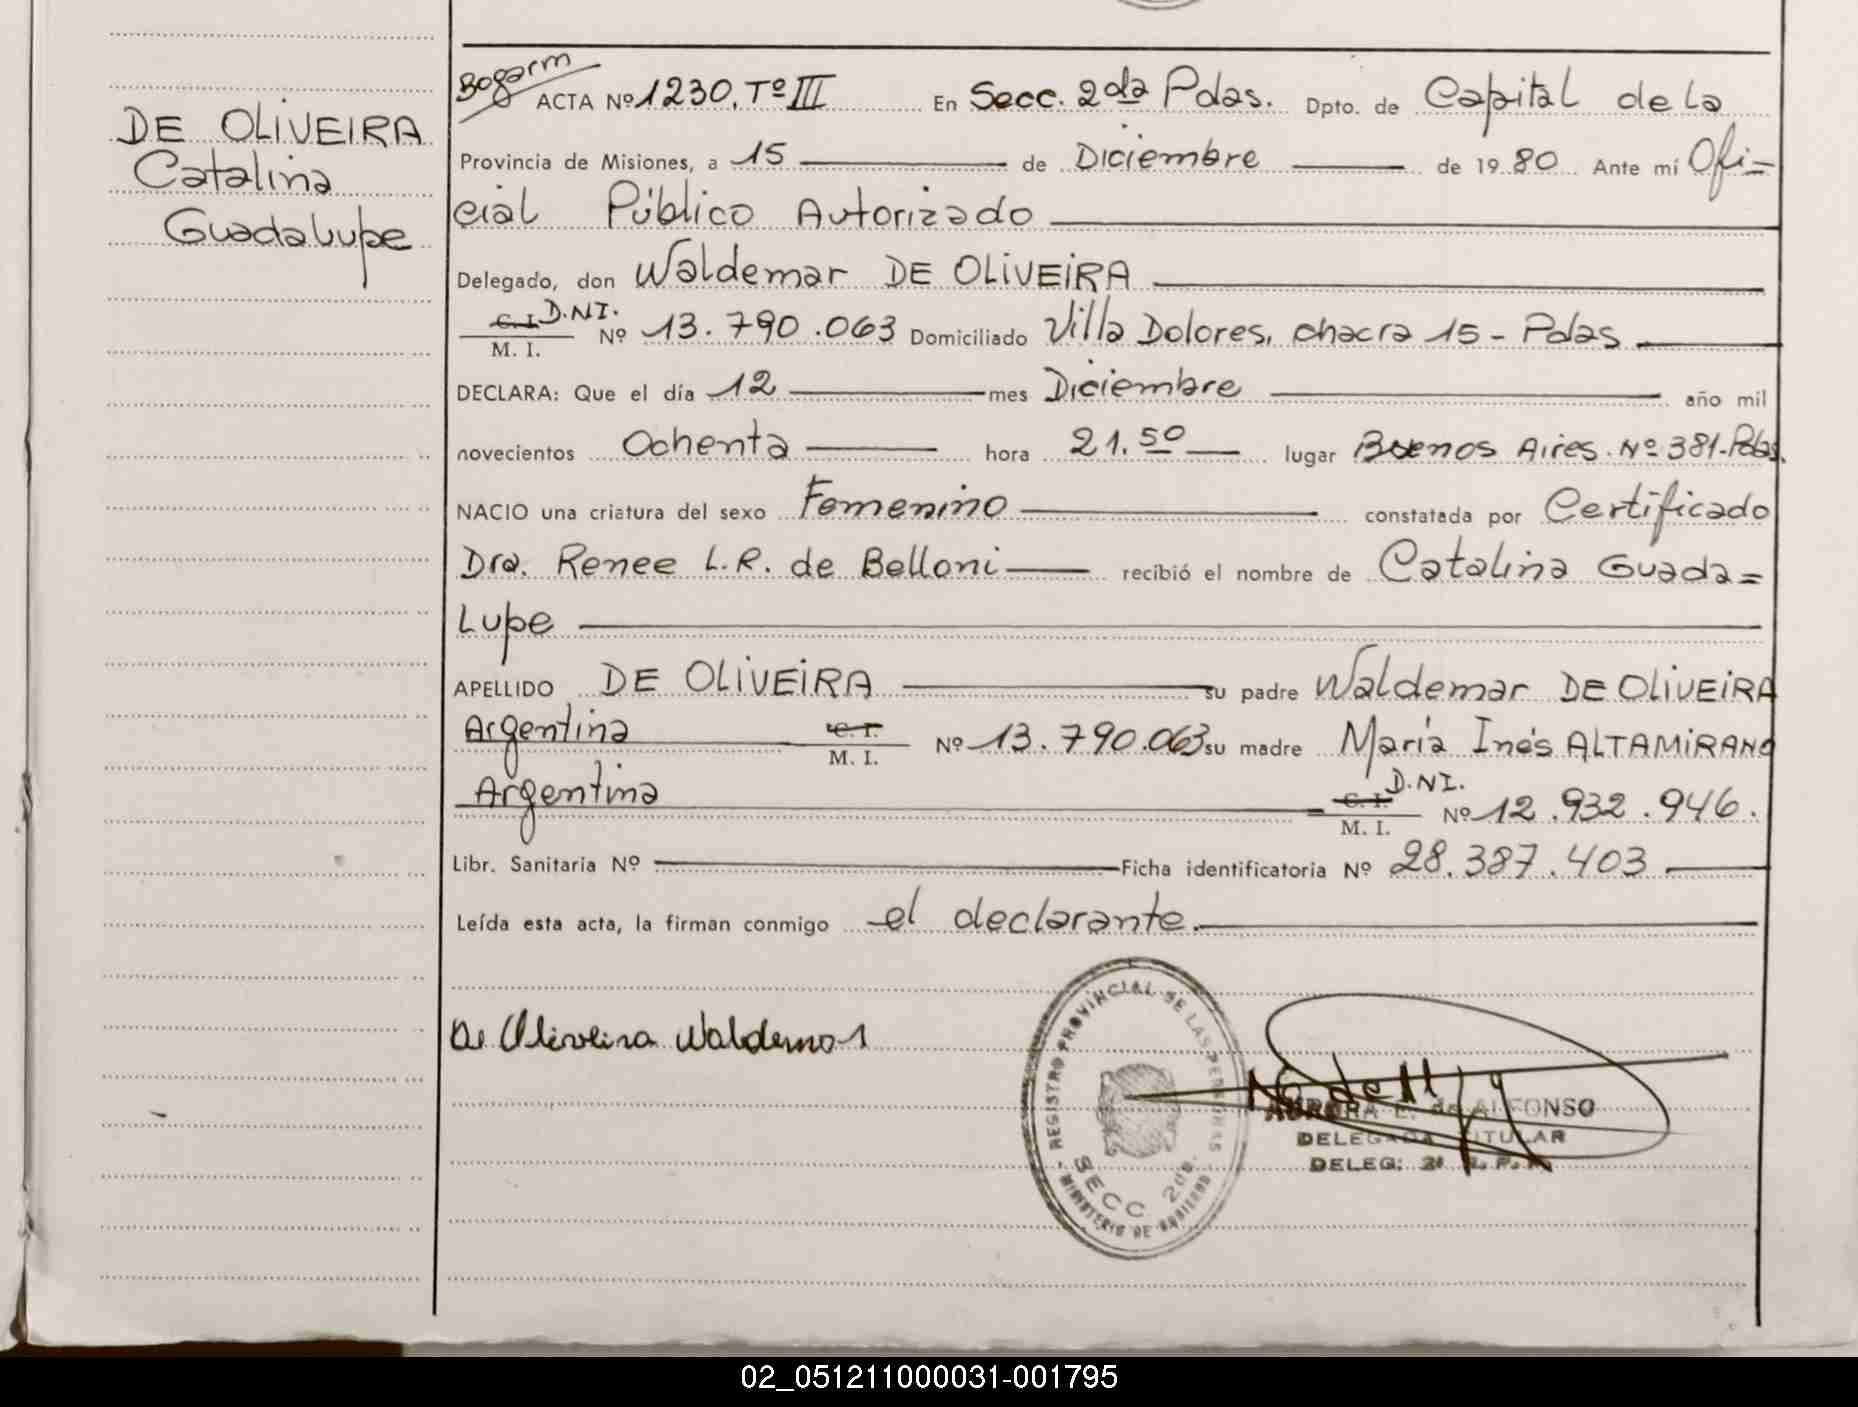 DE OLIVEIRA
Catalina
Guadalupe
Bogarm
ACTA Nº 1230. Tº III En Secc. 2da Pdas. Dpto. de Capital de la
Provincia de Misiones, a 15 de Diciembre de 1980. Ante mí Ofi=
cial Público Autorizado
Delegado, don Waldemar DE OLIVEIRA
C. I. D.N.I.
M. I. Nº 13.790.063 Domiciliado Villa Dolores, chacra 15 - Pdas
DECLARA: Que el día 12 mes Diciembre año mil
novecientos Ochenta hora 21.50 lugar Buenos Aires Nº 381-Pdas.
NACIO una criatura del sexo Femenino constatada por Certificado
Dra. Renee L.R. de Belloni recibió el nombre de Catalina Guada=
Lupe
APELLIDO DE OLIVEIRA su padre Waldemar DE OLIVEIRA
Argentina C. I. M. I. Nº 13.790.063 su madre María Inés ALTAMIRANO
Argentina C. I. D.N.I. M. I. Nº 12.932.946.
Libr. Sanitaria Nº Ficha identificatoria Nº 28.387.403
Leída esta acta, la firman conmigo el declarante.
De Oliveira Waldemar
REGISTRO PROVINCIAL DE LAS PERSONAS
SECC 2da.
MINISTERIO DE GOBIERNO
AURORA E. de ALFONSO
DELEGADA TITULAR
DELEG: 2ª
02_051211000031-001795